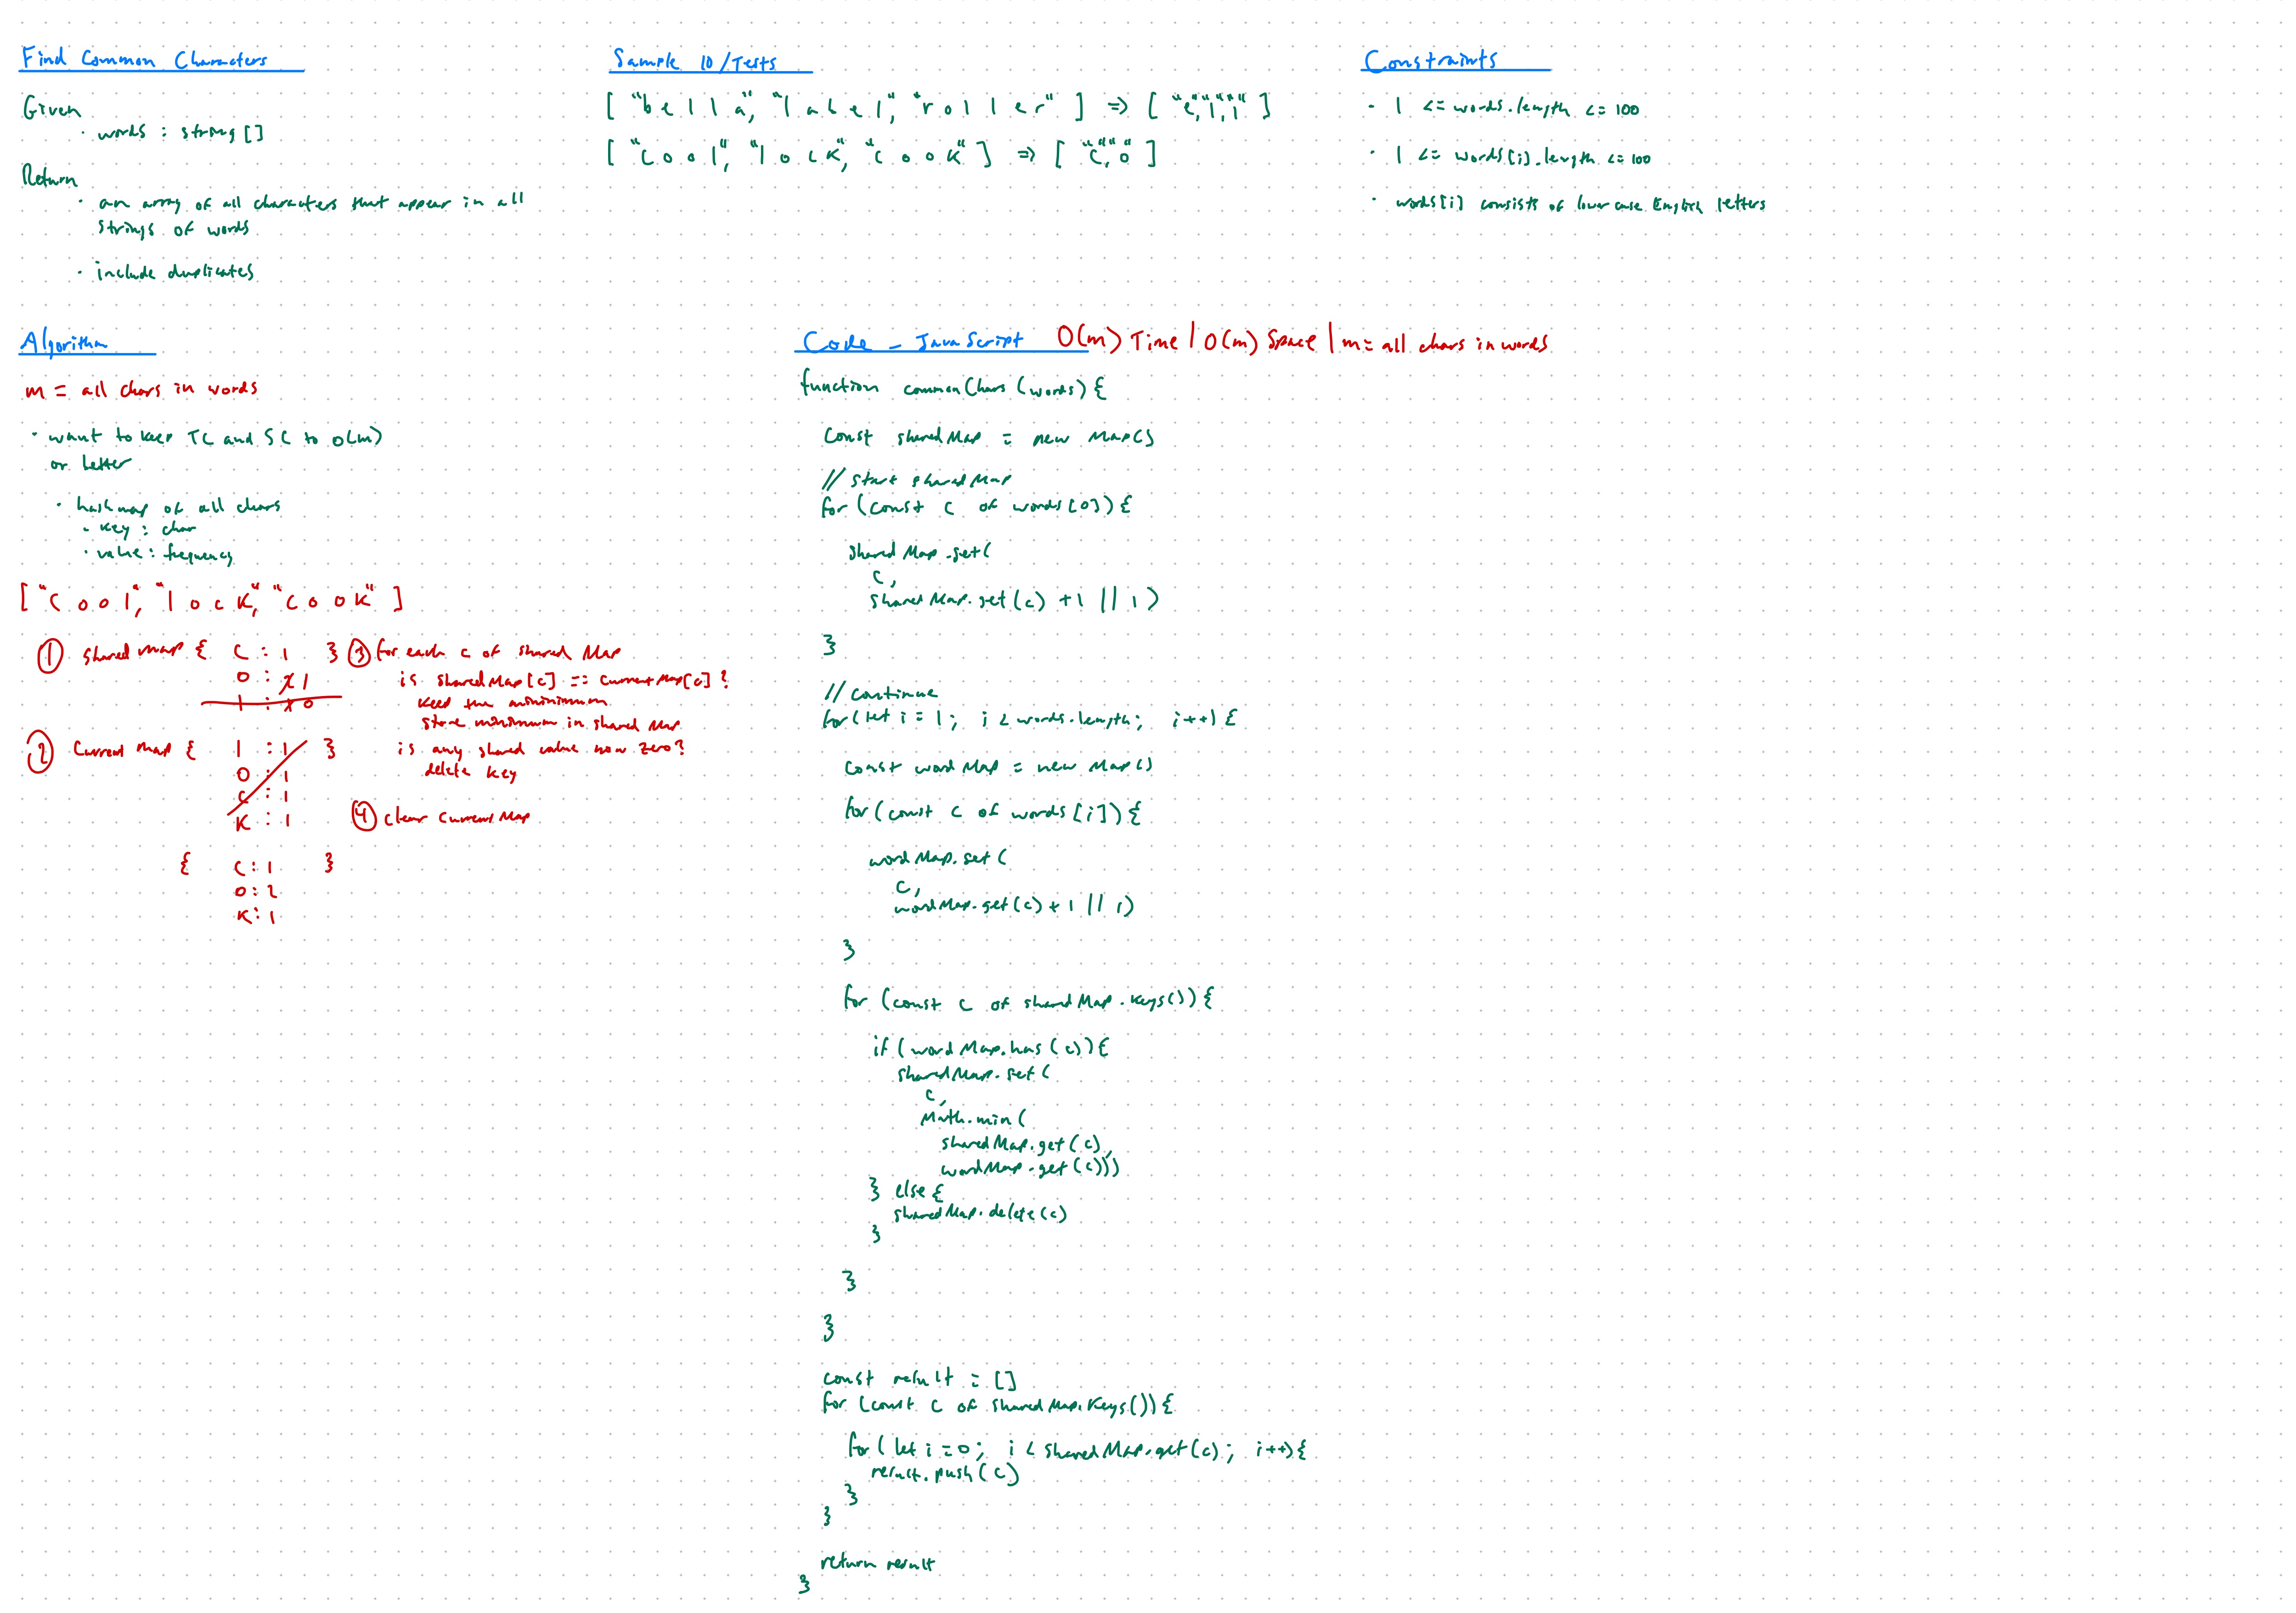 Find Common Characters
Given
· words : string[]
Return
· an array of all characters that appear in all
strings of words
· include duplicates
Sample IO/Tests
[ "bella", "label", "roller" ] => [ "e","l","l" ]
[ "cool", "lock", "cook" ] => [ "c","o" ]
Constraints
· 1 <= words.length <= 100
· 1 <= words[i].length <= 100
· words[i] consists of lower case English letters
Algorithm
m = all chars in words
· want to keep TC and SC to O(m)
or better
· hashmap of all chars
· key : char
· value : frequency
[ "cool", "lock", "cook" ]
① shared map { c : 1 }
o : 2 1
l : 1 0
② Current map { l : 1 }
o : 1
c : 1
k : 1
{ c : 1 }
o : 2
k : 1
③ for each c of shared Map
is sharedMap[c] == currentMap[c] ?
keep the minimimum
store minimum in shared Map
is any shared value now zero?
delete key
④ clear current Map
Code - JavaScript O(m) Time | O(m) Space | m = all chars in words
function commonChars (words) {
const sharedMap = new Map()
// start sharedMap
for (const c of words[0]) {
sharedMap.set(
c,
sharedMap.get(c) + 1 || 1)
}
// continue
for (let i = 1; i < words.length; i++) {
const wordMap = new Map()
for (const c of words[i]) {
wordMap.set(
c,
wordMap.get(c) + 1 || 1)
}
for (const c of sharedMap.keys()) {
if (wordMap.has(c)) {
sharedMap.set(
c,
Math.min(
sharedMap.get(c),
wordMap.get(c)))
} else {
sharedMap.delete(c)
}
}
}
const result = []
for (const c of sharedMap.keys()) {
for (let i = 0; i < sharedMap.get(c); i++) {
result.push(c)
}
}
return result
}